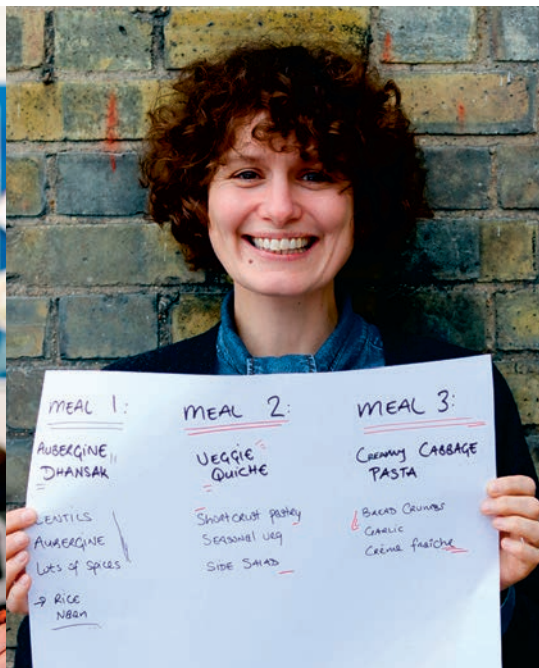 MEAL 1:
AUBERGINE
DHANSAK
LENTILS
AUBERGINE
LOTS OF SPICES
→ RICE
NAAN
MEAL 2:
VEGGIE
QUICHE
Shortcrust pastry
SEASONAL VEG
SIDE SALAD
MEAL 3:
CREAMY CABBAGE
PASTA
BREAD CRUMBS
GARLIC
CRÈME FRAÎCHE